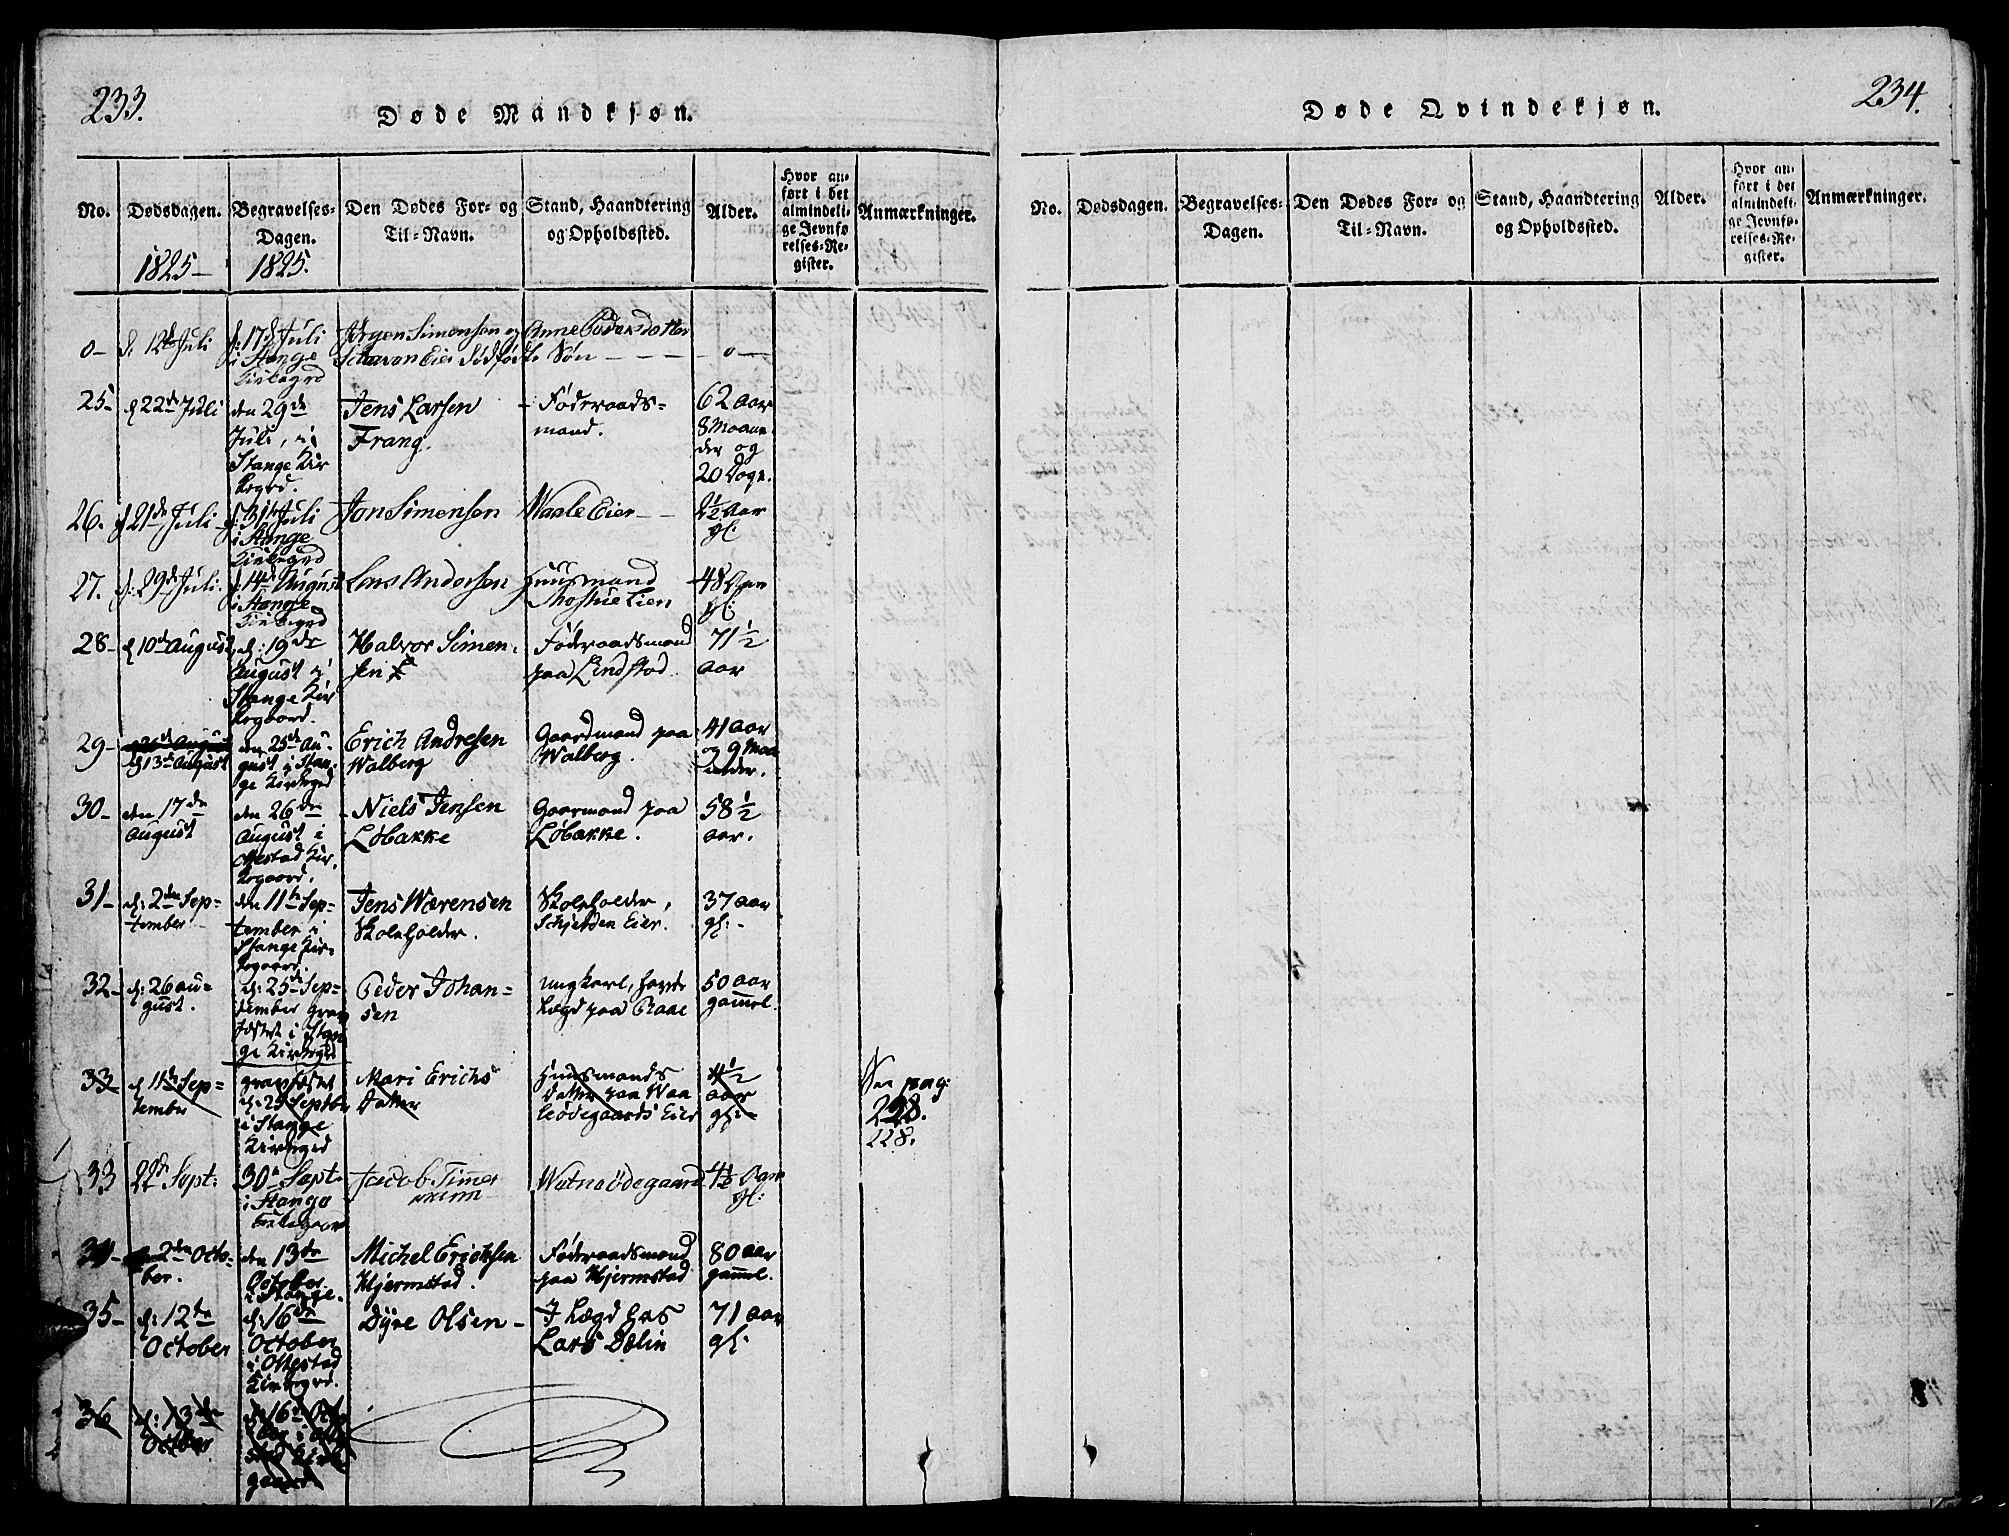 233.
Døde Mandkjøn.
No.
Dødsdagen.
1825
Begravelses-
Dagen.
1825.
Den Dødes For- og
Til-Navn.
Stand, Haandtering
og Opholdssted.
Alder.
Hvor an-
ført i det
almindeli-
ge Jevnfø
relses-Re-
gister.
Anmærkninger.
0 - d. 12te Juli
d: 17de Juli
i Stange
Kirkegrd
Jørgen Simensen og Anne Pedersdatter
Eier Dødfødte Søn - - -
- 0 -
25 -
d 22de Juli
den 29de
Juli, i
Stange Kir
kegrd.
Jens Larsen
Frang.
- Føderaads-
mand.
62 aar
8 Maane
der og
20 Dage.
26.
d 21de Juli
d: 31te Juli
i Stange
Kirkegrd
Jon Simensen
Waale Eier -
2½ Aar
gl:
27.
d: 29de Juli.
d: 14de August
i Stange
Kirkegrd
Lars Andersen
Huusmand
Eier
48 Aar
gl:
28 -
d 10de August
d: 19de
August i
Stange Kir
kegaard.
Halvor Simen-
sen
Føderaadsmand
paa Lindstad
71½
aar
29 -
d 13de August
den 25de Au-
gust i Stan-
ge Kirkegrd
Erich Andresen
Walberg
Gaardmand paa
Walberg.
41 aar
og 9 Maa
neder.
30 -
den 17de
August
den 26de
August i
Ottestad Kir-
kegaard.
- Niels Jensen
Løbakke
Gaarmand paa
Løbakke.
58½
aar.
31 -
d: 2den Sep-
tember
den 11te Sep-
tember i
Stange Kir-
kegaard
Jens Wærensen
Skoleholder.
Skoleholder,
Eier.
37 aar
gl: -
32 -
d: 26 au-
gust.
d: 25de Sep-
tember grav
fæstet i Stan
ge Kirkegrd
Peder Johan-
sen
ungkarl, havde
Lægd paa Raae
50 aar
gammel.
33
d 11te Sep-
tember
gravfæstet
d: 25 Septbr
i Stange
Kirkegrd
Mari Erichs
datter
Huusmands
datter paa Waa
leødegaards Eier
4½
aar
gl: -
See pag:
228.
228.
33
22de Sept:
30te Sept.
i Stange
Kirkegaard
Jacob Timer
mann
Wotnsødegaard
4½ Aar
gl:
34 -
2den Octo-
ber.
den 13de
October
i Stange.
Michel Erichsen
Hjermstad.
Føderaadsmand
paa Hjermstad
80 aar
gammel.
35 -
d: 12te
October
d: 16de
October
i Ottestad
Kirkegrd.
Dyre Olsen -
I Lægd hos
Lars Dælin
71 aar
gl:
36
d: 13de
October
d: 16de Octo
ber i Otte
stad Kirke
gaard
234.
Døde Qvindekjøn.
No.
Dødsdagen.
Begravelses-
Dagen.
Den Dødes For- og
Til-Navn.
Stand, Haandtering
og Opholdssted.
Alder.
Hvor an-
ført i det
almindeli-
ge Jevnfø-
relses-Re-
gister.
Anmærkninger.